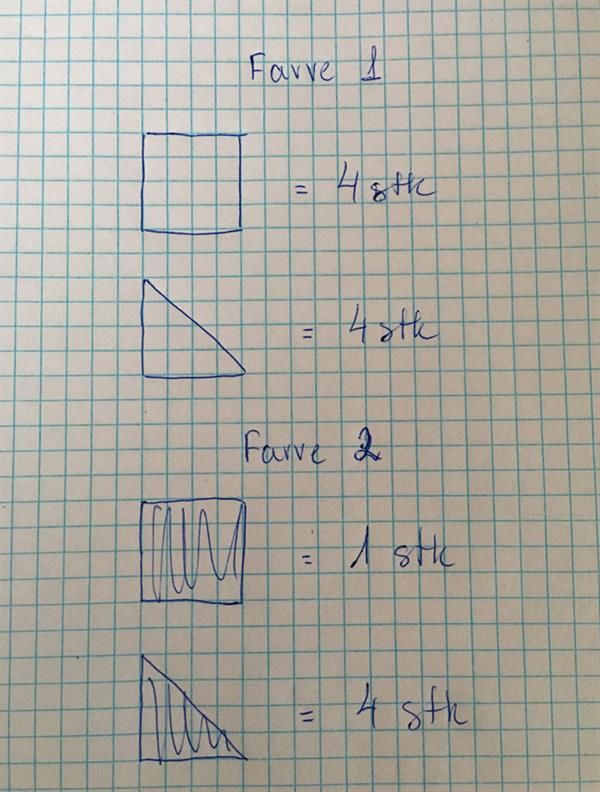 Farve 1
= 4 stk
= 4 stk
Farve 2
= 1 stk
= 4 stk